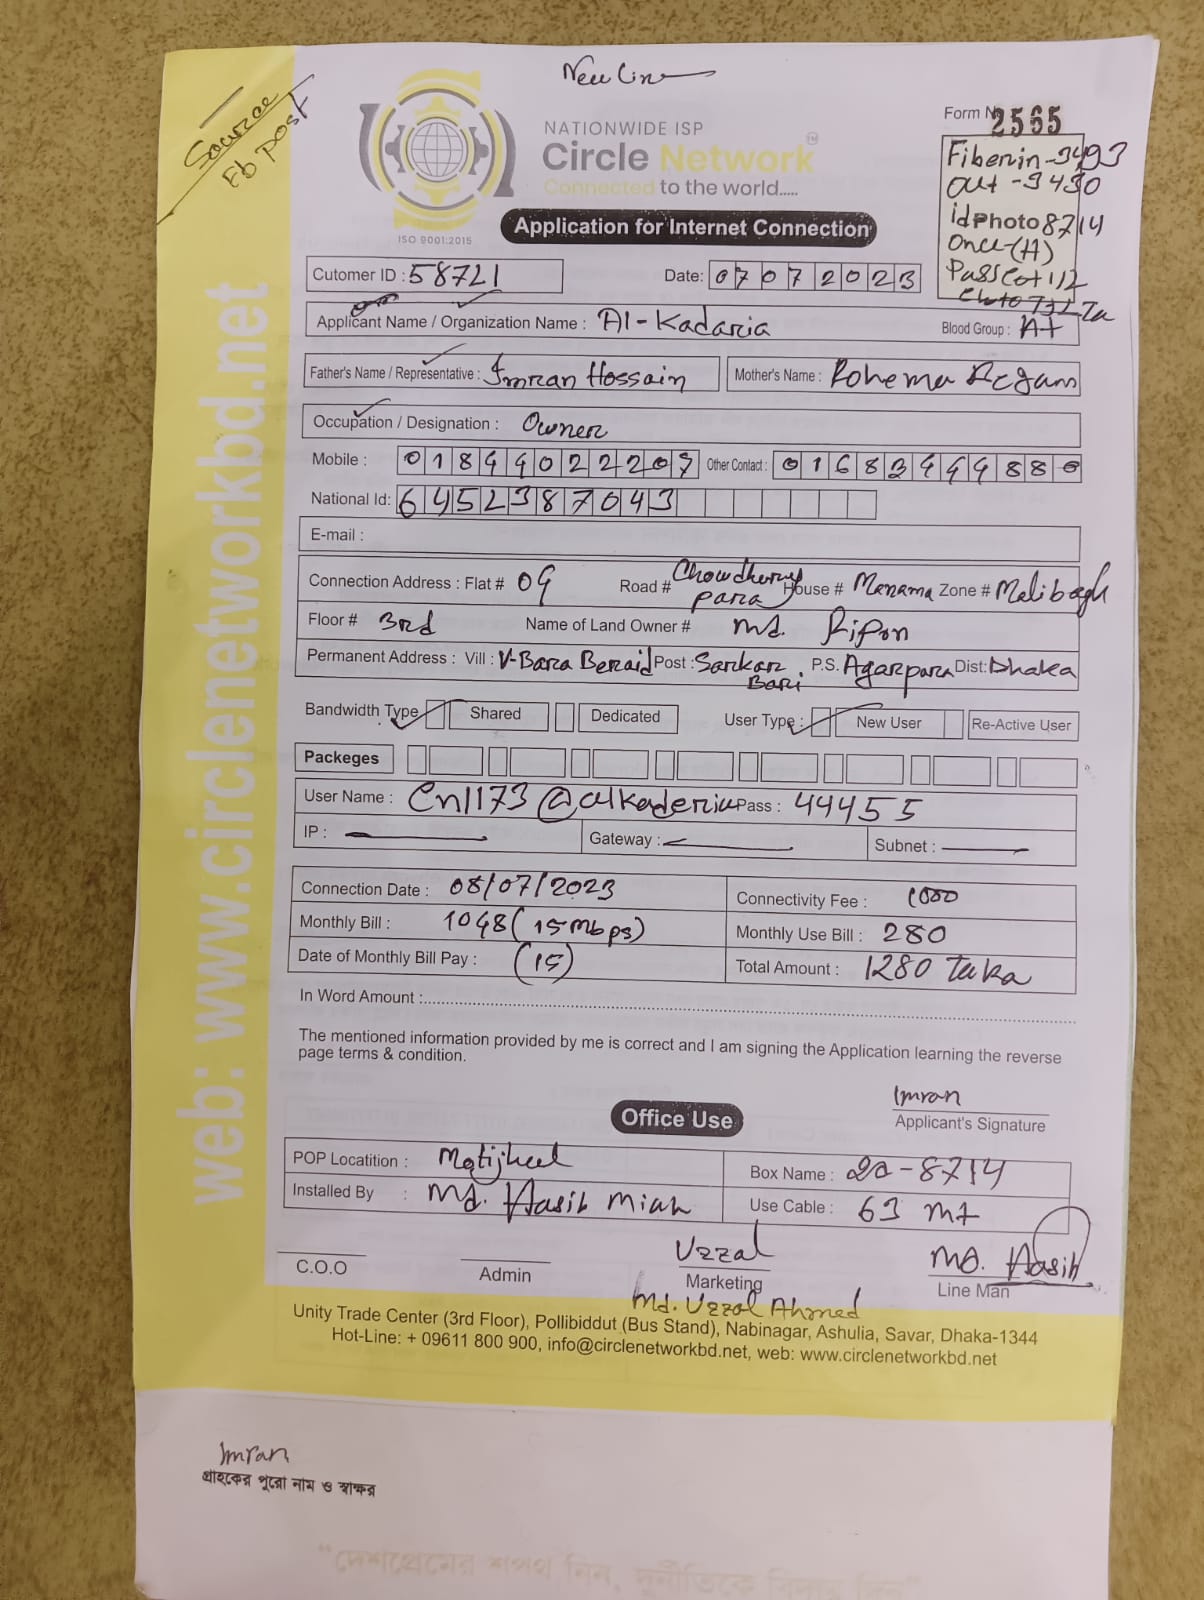 New Line
Source
Fb post
NATIONWIDE ISP
Circle Network
TM
Connected to the world.....
ISO 9001:2015
Form N 2565
Fiber in -3493
out -3430
id Photo 8714
Once-(A)
Application for Internet Connection
Cutomer ID : 58721
Date: 07072023
Applicant Name / Organization Name : Al-Kadaria
Blood Group : A+
Father's Name / Representative : Imran Hossain
Mother's Name : Rohema Begam
Occupation / Designation : Owner
Mobile :
Other Contact :
National Id: 6452387043
E-mail :
Connection Address : Flat # 09 Road # Chowdhury para House # Manama Zone # Malibagh
Floor # 3rd Name of Land Owner # Md. Ripon
Permanent Address : Vill : V-Bara Beraid Post : Sarkar Bari P.S. Agarpara Dist: Dhaka
Bandwidth Type Shared Dedicated User Type : New User Re-Active User
Packeges
User Name : Cn1173@alkaderia Pass : 44455
IP : Gateway : Subnet :
Connection Date : 08/07/2023 Connectivity Fee : 1000
Monthly Bill : 1048 (15 mbps) Monthly Use Bill : 280
Date of Monthly Bill Pay : (15) Total Amount : 1280 Taka
In Word Amount :
The mentioned information provided by me is correct and I am signing the Application learning the reverse
page terms & condition.
Imran
Applicant's Signature
Office Use
POP Locatition : Motijheel Box Name : 20-8714
Installed By : Md. Hasib Miah Use Cable : 63 mt
Uzzal
Md. Hasib
C.O.O Admin Marketing Line Man
Md. Uzzal Ahmed
Unity Trade Center (3rd Floor), Pollibiddut (Bus Stand), Nabinagar, Ashulia, Savar, Dhaka-1344
Hot-Line: + 09611 800 900, info@circlenetworkbd.net, web: www.circlenetworkbd.net
web: www.circlenetworkbd.net
Imran
গ্রাহকের পুরো নাম ও স্বাক্ষর